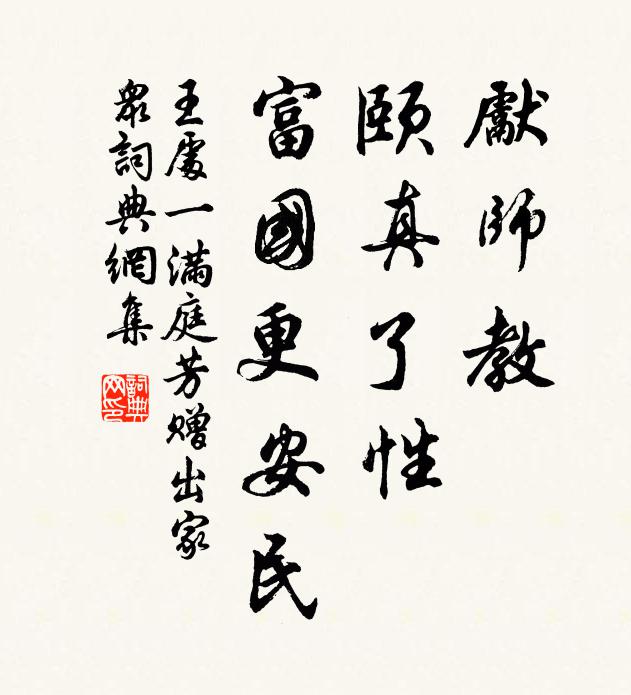 獻師教
頤真了性
富國更安民
王處一滿庭芳贈出家
眾詞典網集
詞典网印